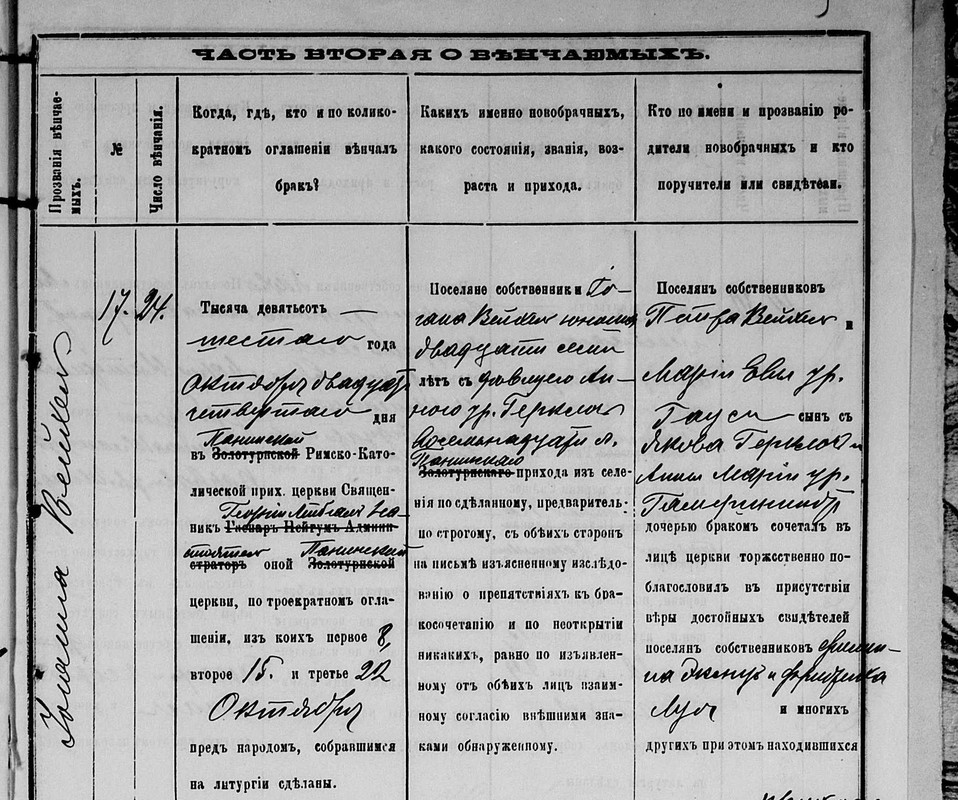 ЧАСТЬ ВТОРАЯ О ВѢНЧАЕМЫХЪ.
Прозванія вѣнчае-
мыхъ.
№
Число вѣнчанія.
Когда, гдѣ, кто и по колико-
кратномъ оглашеніи вѣнчалъ
бракъ?
Какихъ именно новобрачныхъ,
какого состоянія, званія, воз-
раста и прихода.
Кто по имени и прозванію ро-
дители новобрачныхъ и кто
поручители или свидѣтели.
17. 24.
Тысяча девятьсотъ
шестаго года
Октября двадцать
четвертаго дня
Панинской
въ Золотурнской Римско-Като-
лической прих. церкви Священ-
никъ Гаспаръ Нейгумъ Админи-
Панинской
страторъ оной Золотурнской
церкви, по троекратномъ огла-
шеніи, изъ коихъ первое 8,
второе 15. и третье 22
Октября
предъ народомъ, собравшимся
на литургіи сдѣланы.
Поселяне собственники Іо-
гана Вейкель юноша
двадцати семи
лѣтъ съ дѣвицею Ан-
ною ур. Герклоц
восемнадцати л.
Панинскаго
Золотурнскаго прихода изъ селе-
нія по сдѣланному, предваритель-
по строгому, съ обѣихъ сторонъ
на письмѣ изъясненному изслѣдо-
ванію о препятствіяхъ къ бра-
косочетанію и по неоткрытіи
никакихъ, равно по изъявлен-
ному отъ обѣихъ лицъ взаим-
ному согласію внѣшними зна-
ками обнаруженному.
Поселянъ собственниковъ
Петра Вейкель и
Маріи Евы ур.
Гаусъ сынъ съ
Якова Герклоц и
Анны Маріи ур.
дочерью бракомъ сочеталъ въ
лицѣ церкви торжественно по-
благословилъ въ присутствіи
вѣры достойныхъ свидѣтелей
поселянъ собственниковъ
и
и многихъ
другихъ при этомъ находившихся
Вейкель